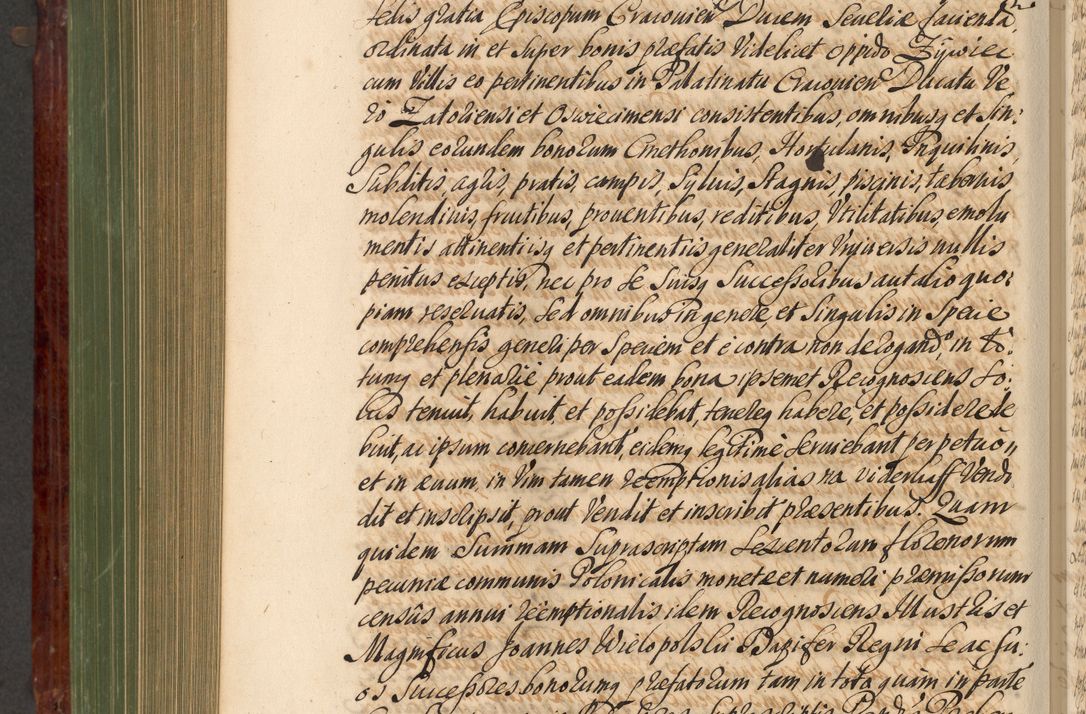 telis gratia Episcopum Cracovien Ducem Severiæ facienda,
ordinata in et super bonis præfatis videlicet oppido Zÿwiec
cum villis eo pertinentibus in Palatinatu Cracovien Ducatu Ve
ro Zatoriensi et Oswiecimensi consistentibus, omnibusq et sin:
gulis eorundem bonorum Cmethonibus, Hortulanis, Inquilinis,
Subditis, agris, pratis, campis, Sylvis, Stagnis, piscinis, tabernis,
molendinis, fructibus, proventibus, reditibus, Utilitatibus, emolu
mentis attinentiisq et pertinentiis generaliter Universis nullis
penitus exceptis, nec pro se suisq Successoribus aut alio quo:
piam reservatis, sed omnibus in genere, et singulis in specie
comprehensis generi per speciem et è contra non derogando, in to:
tum et plenarie prout eadem bona ipsemet Recognoscens so:
lus tenuit, habuit, et possidebat, tenereq habere, et possidere de
buit, ac ipsum concernebant, eidemq legitimè serviebant perpetuò
et in ævum, in vim tamen reemptionis alias na viderkaff Vendi
dit et inscripsit, prout Vendit et inscribit præsentibus. Quam
quidem Summam suprascriptam sexcentorum florenorum
pecuniæ communis Polonicalis monetæ et numeri præmissorum
censûs annui reemptionalis idem Recognoscens Illustris et
Magnificus Joannes Wielopolski Dapifer Regni se ac su:
os Successores bonorumq præfatorum tam in toto quam in parte